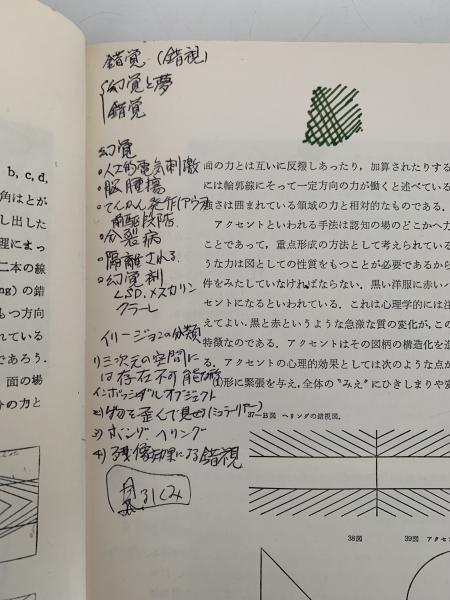 錯覚 (錯視)
幻覚と夢
錯覚
幻覚
・人工的電気刺激
・脳腫瘍
・てんかん発作(アウラ
前駆段階
・分裂病
・隔離される
・幻覚剤
LSD, メスカリン
クラーレ
イリージョンの分類
1) 三次元の空間に
は存在不可能な
インポッシブルオブジェクト
2) 物を歪んで見せ(ミュラーリヤー)
3) ポンゾ ヘリング
4) 残像効果による錯視
b, c, d,
角はとが
し出した
理によっ
二本の線
ng) の錯
もつ方向
れている
であろう.
面の場
分の力と
面の力とは互いに反撥しあったり, 加算されたりする
には輪郭線にそって一定方向の力が働くと述べている
強さは囲まれている領域の力と相対的なものである.
アクセントといわれる手法は認知の場のどこかへ力
ことであって, 重点形成の方法として考えられている
うな力は図としての性質をもつことが必要であるから
件をみたしていなければならない. 黒い洋服に赤いベ
セントになるといわれている. これは心理学的には注
えてよい. 黒と赤というような急激な質の変化が, この
特徴なのである. アクセントはその図柄の構造化を進
る. アクセントの心理的効果としては次のような点が
(1)形に緊張を与え, 全体の“みえ”にひきしまりや変
37—B図 ヘリングの錯視図.
38図 39図 アクセン